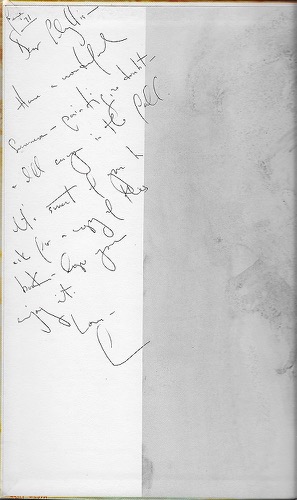 Dear Phyllis -
Have a wonderful
Summer - painting no doubt -
& I'll see you in the fall.
It's sweet of you to
ask for a copy of this
book - hope you
enjoy it.
Love -